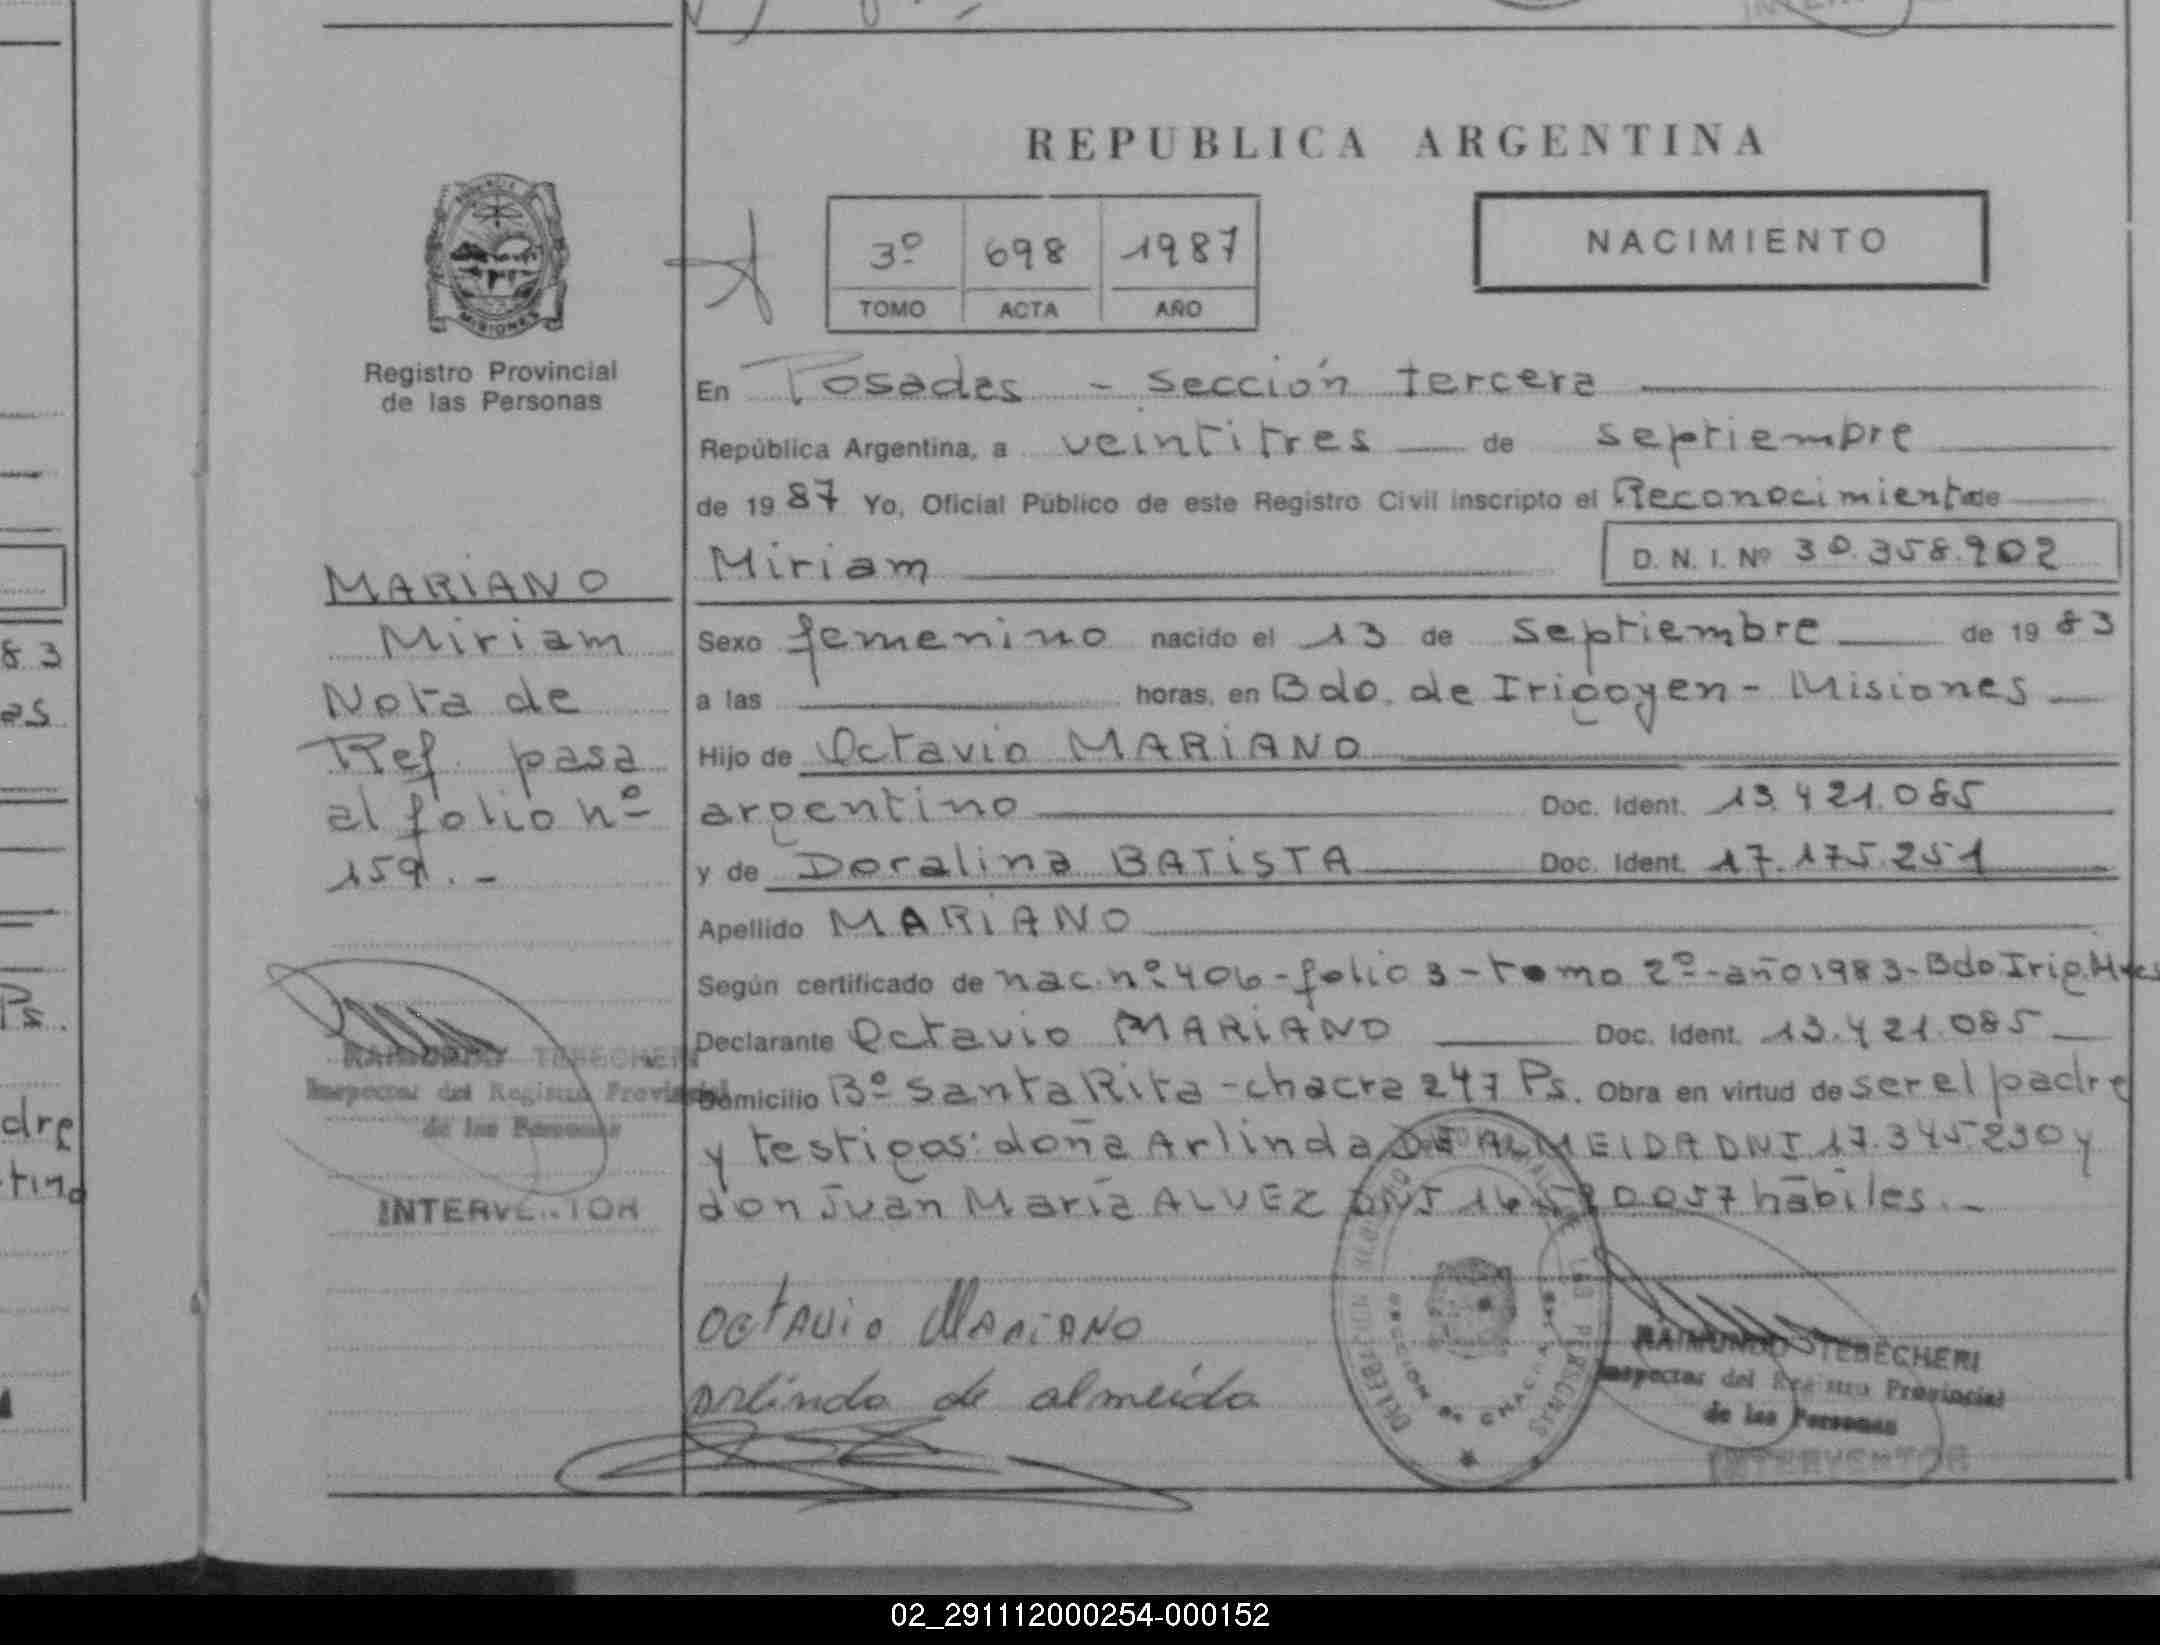 REPUBLICA ARGENTINA
3º 698 1987
TOMO ACTA AÑO
NACIMIENTO
MISIONES
Registro Provincial
de las Personas
MARIANO
Miriam
Nota de
Ref. pasa
al folio nº
159.-
RAIMUNDO TEBECHERI
Inspector del Registro Provincial
de las Personas
INTERVENTOR
En Posadas - sección tercera
República Argentina, a veintitres de septiembre
de 1987 Yo, Oficial Público de este Registro Civil inscripto el Reconocimiento de
Miriam
D. N. I. Nº 30.358.902
Sexo femenino nacido el 13 de septiembre de 1983
a las horas, en Bdo. de Irigoyen - Misiones
Hijo de Octavio MARIANO
argentino Doc. Ident. 13.421.085
y de Doralina BATISTA Doc. Ident. 17.175.251
Apellido MARIANO
Según certificado de nac. nº 406 - folio 3 - tomo 2º - año 1983 - Bdo Irig. Mnes
Declarante Octavio MARIANO Doc. Ident. 13.421.085
Domicilio Bº Santa Rita - chacra 247 Ps. Obra en virtud de ser el padre
y testigos: doña Arlinda DE ALMEIDA DNI 17.345.290 y
don Juan María ALVEZ DNI hábiles.-
Octavio MARIANO
arlinda de almeida
RAIMUNDO TEBECHERI
Inspector del Registro Provincial
de las Personas
INTERVENTOR
83
as
Ps.
dre
02_291112000254-000152